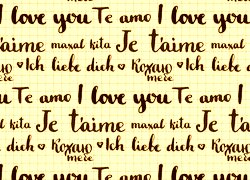 I love you Te amo I love you
t'aime maxal kita Je t'aime
Кохаю ♥ Ich liebe dich ♥ Кохаю
тебе тебе
you Te amo I love you Te amo I
kita Je t'aime maxal kita J
dich ♥ Кохаю ♥ Ich liebe dich
тебе
I love you Te amo I love you